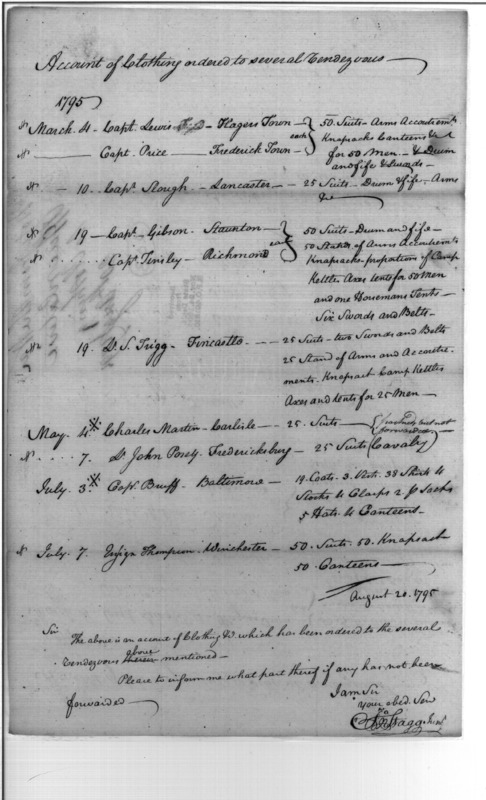 Account of Clothing ordered to several Rendezvous
1795
March 4 - Capt. Lewis - Hagers Town - each } 50 Suits - Arms Accoutremts
Capt. Price Frederick Town - Knapsacks Canteens &c
for 50 Men - & Drum
and fife & Swords -
10 - Capt. Slough - Lancaster - 25 Suits - Drum & fife - Arms
&c
19 - Capt. Gibson - Staunton - each } 50 Suits - Drum and fife -
50 Stands of Arms Accoutremts
Capt. Tinsley - Richmond Knapsacks proportion of Camp
Kettles Axes tents for 50 Men
and one Horsemans Tent -
Six Swords and Belts -
19. Lt. S. Trigg - Fincastle - - - 25 Suits - two Swords and Belts
25 Stand of Arms and Accoutre-
ments - Knapsack Camp Kettles
Axes and tents for 25 Men -
May 4 Charles Martin - Carlisle - 25. Suits - not
forwarded
7. Lt. John Posey - Fredericksburg - 25 Suits (Cavalry)
July 3 Capt. Bruff - Baltimore - 19. Coats. 3 Vests. 38 Shirts 4
Stocks 4 Clasps 2 p Socks
5 Hats 4 Canteens -
July. 7. Ensign Thompson - Winchester - 50. Suits. 50. Knapsack
50. Canteens
August 20. 1795
Sir
The above is an account of Clothing &c. which has been ordered to the several
rendezvous above mentioned -
Please to inform me what part thereof if any has not been
forwarded
I am Sir
your obed. Serv
Stagg